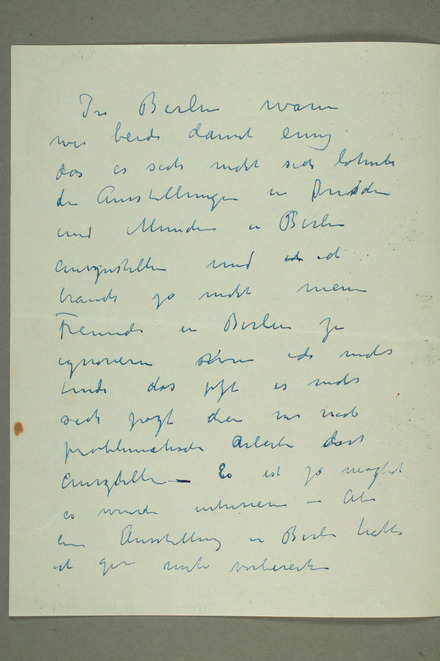 In Berlin waren
wir beide damit einig
das es sich nicht sich lohnte
die Ausstellungen in Dresden
und München in Berlin
auszustellen und ich
brauche ja nicht meine
Freunde in Berlin zu
ignorieren ich nicht
finde das jetzt es nicht
sich
problematische Arbeiten dort
auszustellen – Es ist ja möglich
es würde interessieren – Aber
eine Ausstellung in Berlin hatte
ich gern mit vorbereitet